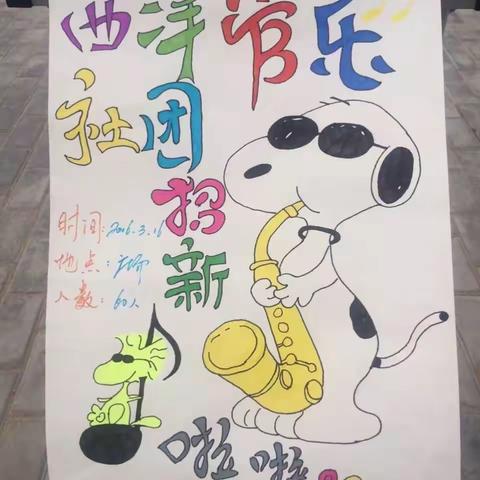 西洋管乐
社团
招
新
时间:2016.3.16
地点:广场
人数:60人
啦啦